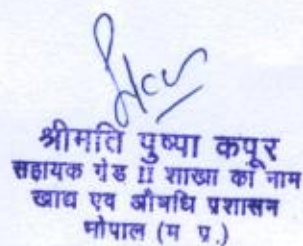 श्रीमति पुष्पा कपूर
सहायक ग्रेड II शाखा का नाम
खाद्य एवं औषधि प्रशासन
भोपाल (म प्र.)